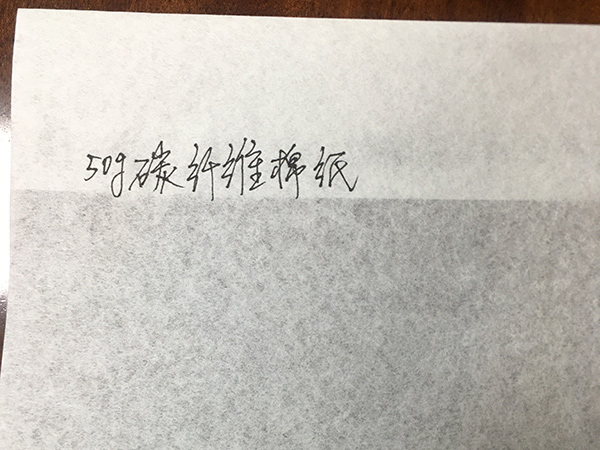 50g碳纤维棉纸